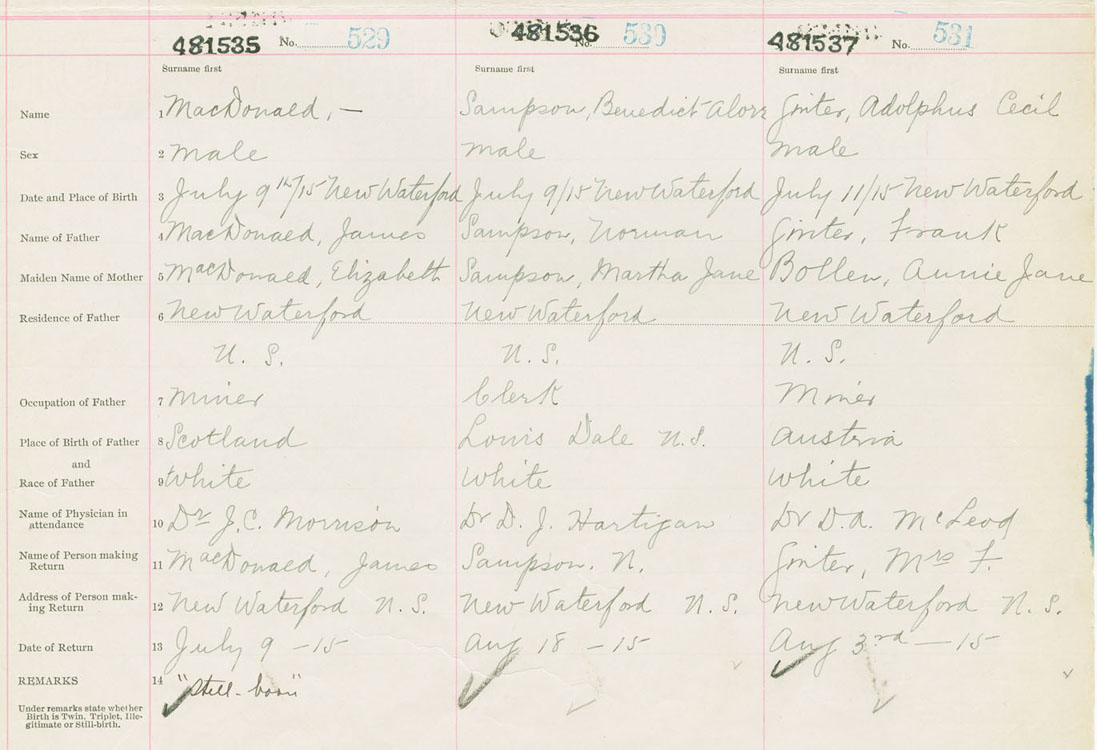 481535 No. 529 481536 No. 530 481537 No. 531
Surname first Surname first Surname first
Name 1 MacDonald, — Sampson, Benedict Ginter, Adolphus Cecil
Sex 2 male male male
Date and Place of Birth 3 July 9th/15 New Waterford July 9/15 New Waterford July 11/15 New Waterford
Name of Father 4 MacDonald, James Sampson, Norman Ginter, Frank
Maiden Name of Mother 5 MacDonald, Elizabeth Sampson, Martha Jane Bollen, Annie Jane
Residence of Father 6 New Waterford New Waterford New Waterford
N. S. N. S. N. S.
Occupation of Father 7 miner Clerk Miner
Place of Birth of Father 8 Scotland Louis Dale N.S. Austria
and
Race of Father 9 White White White
Name of Physician in
attendance 10 Dr J. C. Morrison Dr D. J. Hartigan Dr D. A. McLeod
Name of Person making
Return 11 MacDonald, James Sampson. N. Ginter, Mrs F.
Address of Person mak-
ing Return 12 New Waterford N. S. New Waterford N. S. New Waterford N. S.
Date of Return 13 July 9 - 15 Aug 18 - 15 Aug 3rd — 15
REMARKS 14 "Still-born"
Under remarks state whether
Birth is Twin, Triplet, Ille-
gitimate or Still-birth.